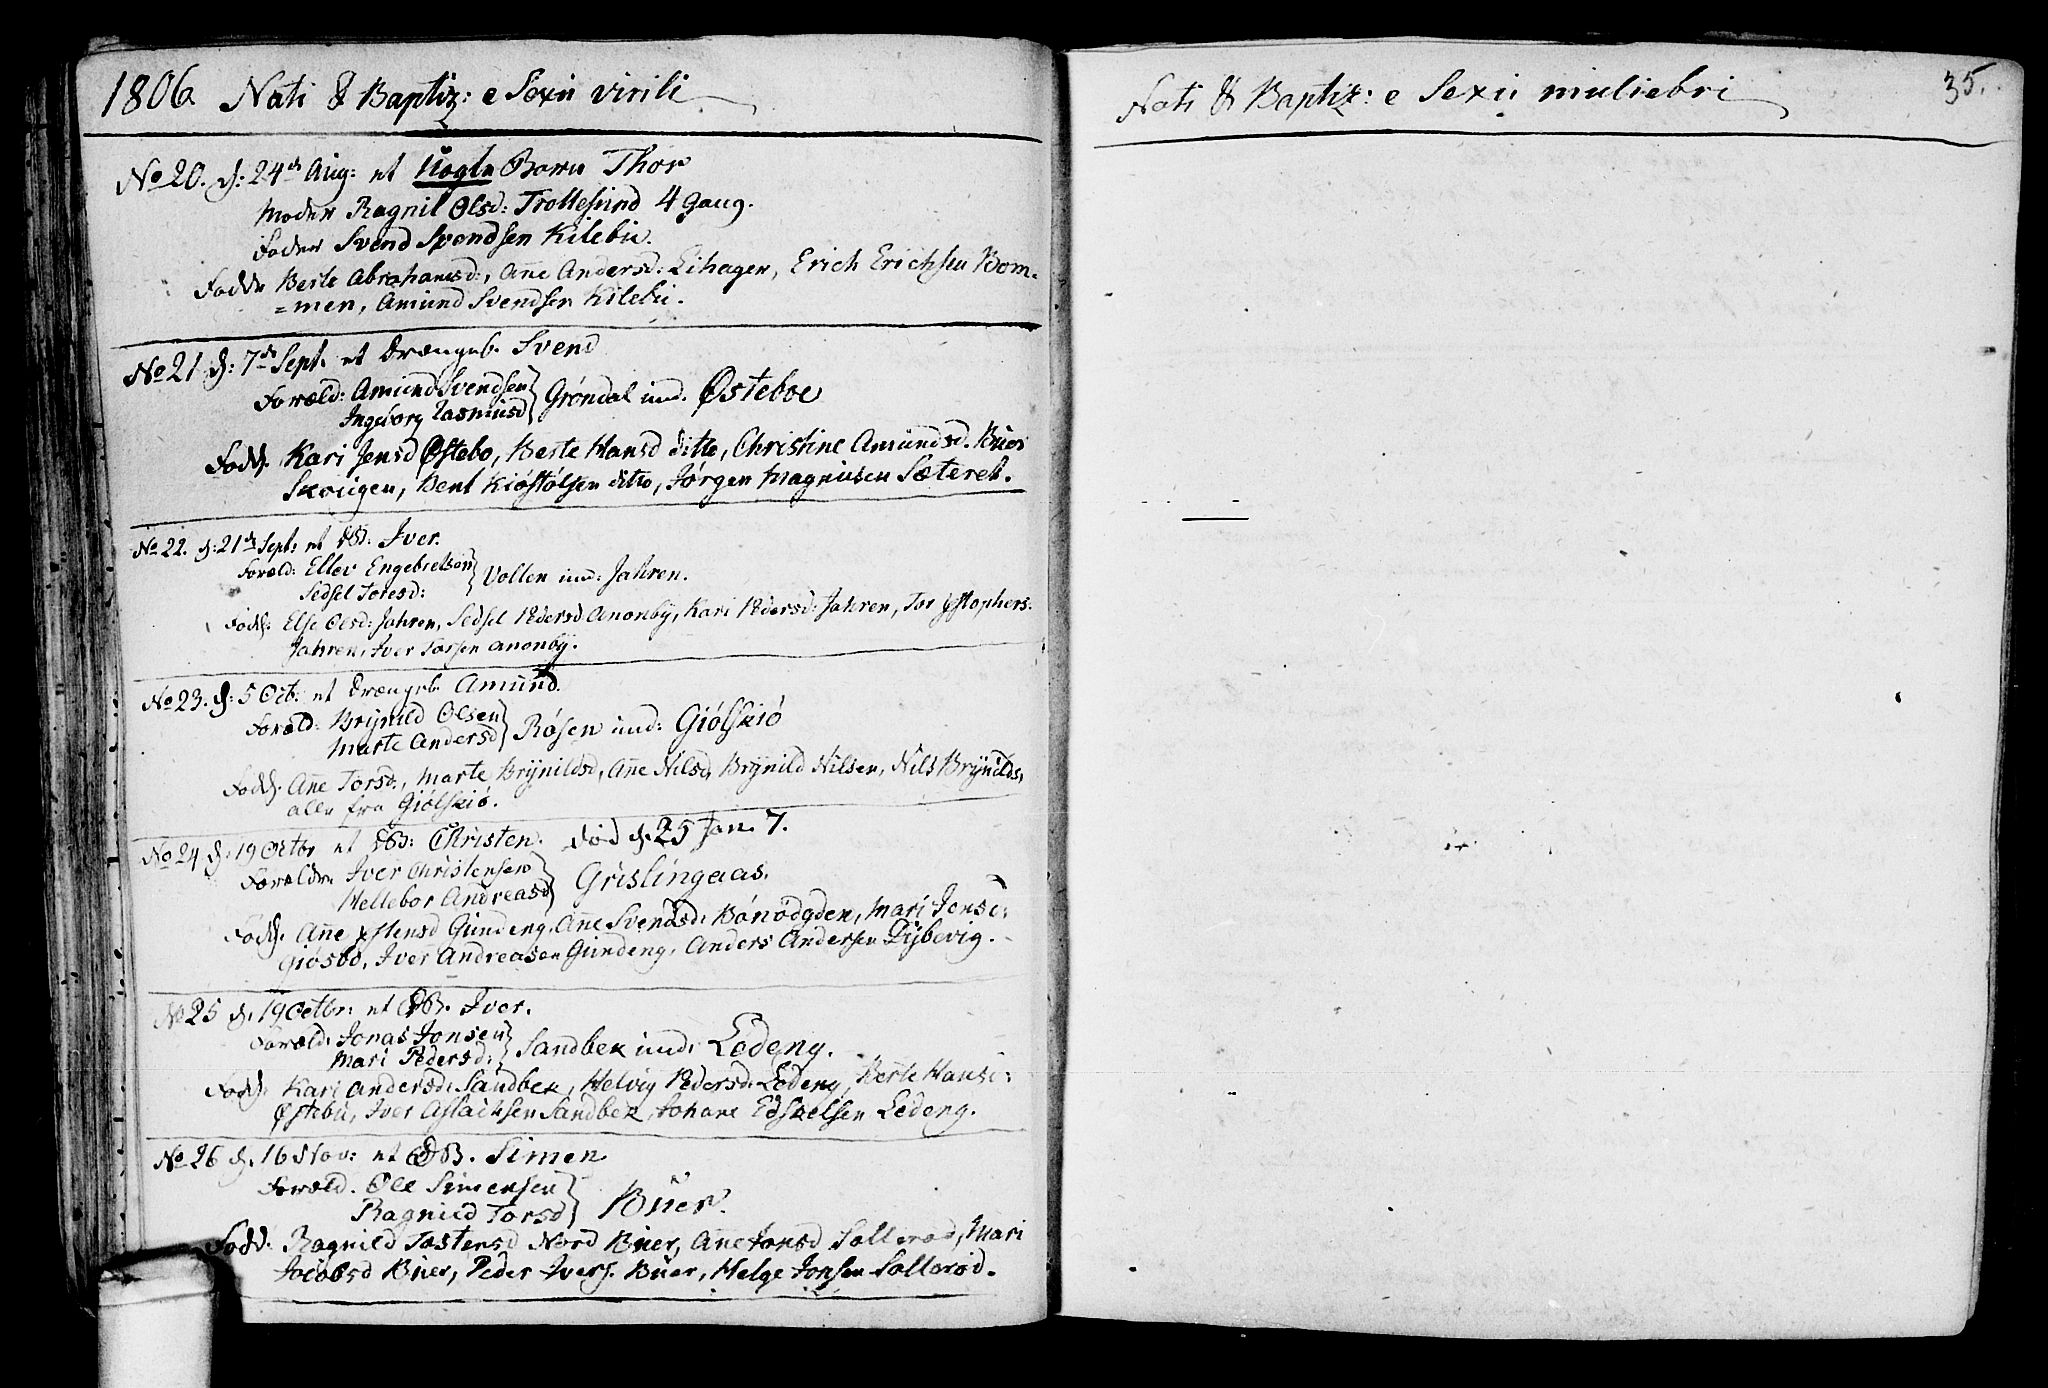 1806 Nati & Baptiz: e Sexu virili
No 20. d: 24de Aug: et Uægte Barn Thor
Moder Ragnil Olsd: Trollesund 4 gang.
Fader Svend Svendsen Kilebu.
Fadd: Berte Abrahamsd:, Añe Andersd: Lihagen, Erich Erichsen Bom=
=men, Amund Svendsen Kilebu.
No 21 d: 7de Sept. et Drængeb. Svend
Foræld: Amund Svendsen
Ingeborg Rasmusd } Grøndal und. Østeboe
Fadd. Kari Jensd Østebo, Berte Hansd ditto, Christine Amundsd. Bues
Skougen, Bent Kiøstølsen ditto, Jørgen Magnusen Sæteret.
No 22. d: 21de Sept: et DB: Iver.
Foræld: Ellev Engebretsen
Sedsel Toresd: } Vollen und: Jahren.
Fadd. Else Olsd: Jahren, Sedsel Pedersd Anonby, Kari Pedersd: Jahren, Tor Xstophers:
Jahren, Iver Torsen Anonby.
No 23. d: 5 Octb. et Drængeb. Amund.
Foræld: Brynild Olsen
Marte Andersd } Røsen und: Giølskiø
Fadd. Añe Torsd., Marte Brynildsd, Añe Nilsd, Brynild Nilsen, Nils Brynilds,
alle fra Giølskiø.
No 24 d. 19 Octbr et DB: Christen. Fød d. 25 Jan. 7.
Forældre Iver Christensen
Hellebor Andreasd } Grislingaas.
Fadd. Añe Xstensd Gundeng, Añe Svendsd: Bonødgden, Mari Jensd:
Giøsbø, Iver Andreasen Gundeng, Anders Andersen Dybevig.
No 25 d. 19 Octbr: et DB. Iver.
Foræld: Jonas Jonsen
Mari Pedersd: } Sandbek und: Lødeng.
Fadd. Kari Andersd: Sandbek, Helvig Pedersd: Lødeng, Berte Hansd:
Østebu, Iver Aslachsen Sandbek, Johane Edskelsen Lødeng.
No 26 d. 16 Nov: et DB. Simen
Foræld. Ole Simensen
Ragnild Torsd } Buer.
Fadd. Ragnild Tostensd Nord Buer, Añe Jonsd Sollerød, Mari
Jacobsd Buer, Peder Ivers. Buer, Helge Jonsen Sollerød.
Nati & Baptiz: e Sexu muliebri
35.